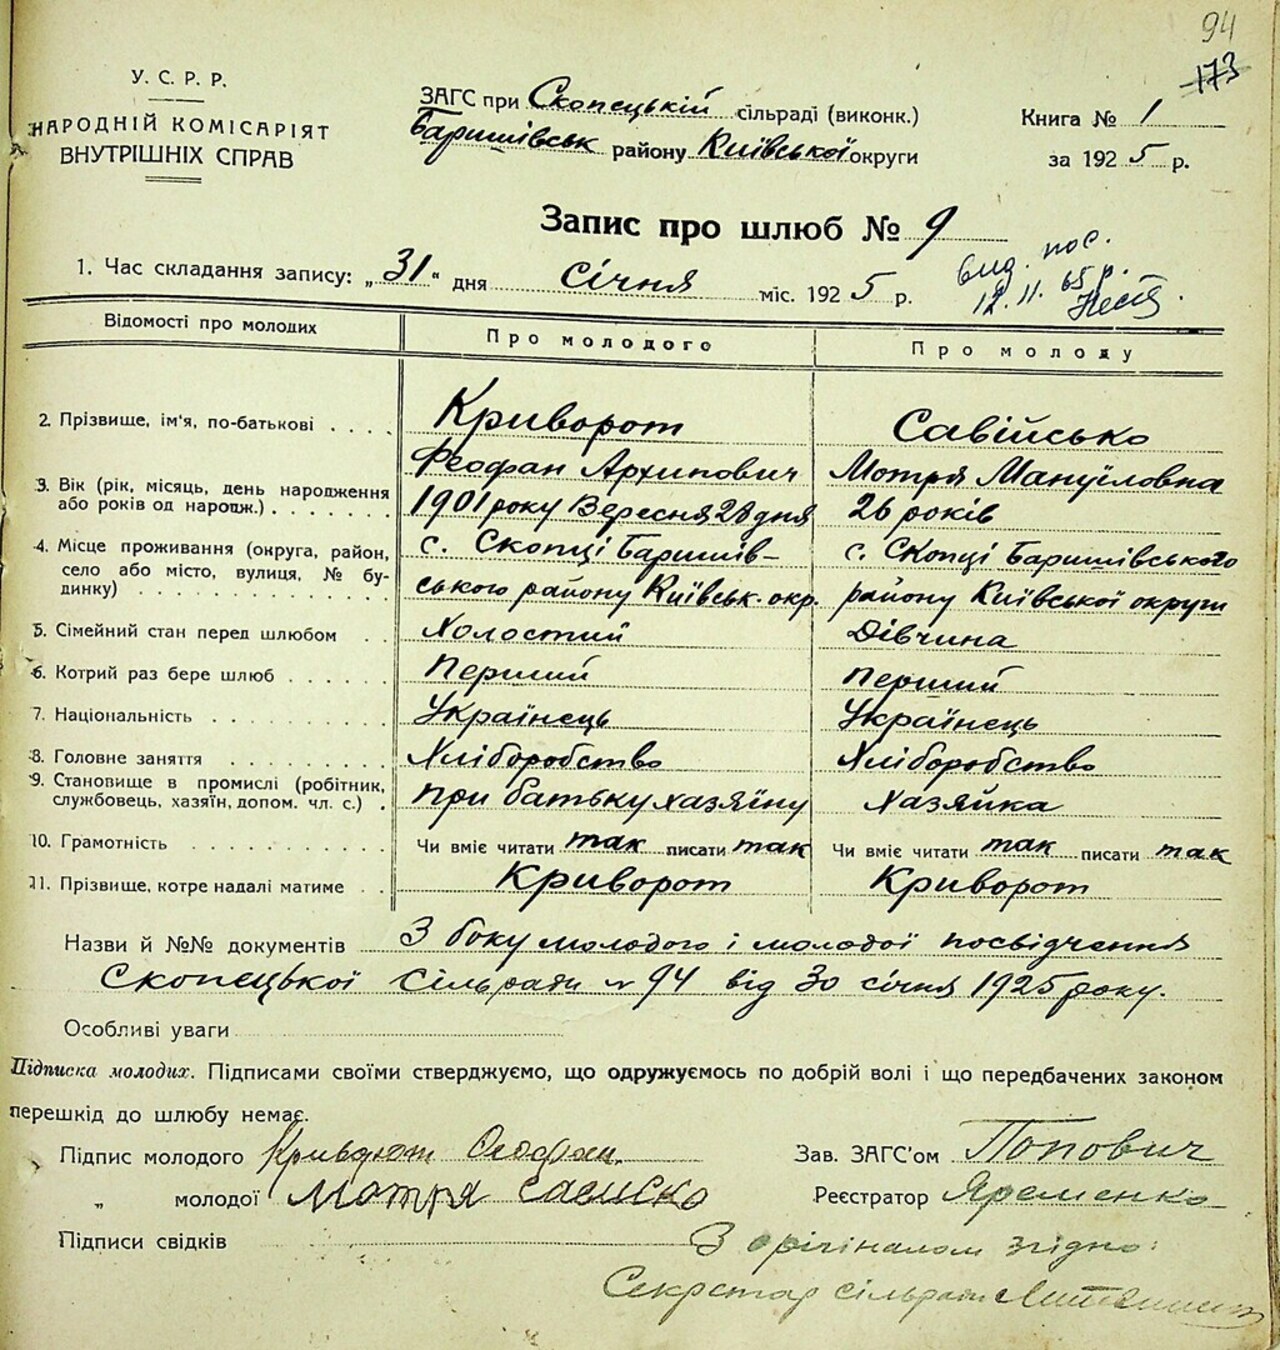 94
173
У. С. Р. Р.
НАРОДНІЙ КОМІСАРІЯТ
ВНУТРІШНІХ СПРАВ
ЗАГС при Скопецькій сільраді (виконк.)
Баришівськ району Київської округи
Книга № 1
за 1925 р.
Запис про шлюб № 9
вид. пос.
12. 11. 65 р.
1. Час складання запису: „31“ дня січня міс. 1925 р.
Відомості про молодих Про молодого Про молоду
2. Прізвище, ім'я, по-батькові . . . . Криворот Савійсько
Феофан Архипович Мотря Мануїловна
3. Вік (рік, місяць, день народження
або років од народж.) . . . . . . . 1901 року Вересня 28 дня 26 років
4. Місце проживання (округа, район, с. Скопці Баришів- с. Скопці Баришівського
село або місто, вулиця, № бу-
динку) . . . . . . . . . . . . . ського району Київськ. окр. району Київської округи
5. Сімейний стан перед шлюбом . . Холостий Дівчина
6. Котрий раз бере шлюб . . . . . . Перший перший
7. Національність . . . . . . . . . . Українець Українець
8. Головне заняття . . . . . . . . . Хліборобство Хліборобство
9. Становище в промислі (робітник,
службовець, хазяїн, допом. чл. с.) . при батьку хазяїну Хазяйка
10. Грамотність . . . . . . . . . . . Чи вміє читати так писати так Чи вміє читати так писати так
11. Прізвище, котре надалі матиме . . Криворот Криворот
Назви й №№ документів З боку молодого і молодої посвідчення
Скопецької сільради № 94 від 30 січня 1925 року.
Особливі уваги
Підписка молодих. Підписами своїми стверджуємо, що одружуємось по добрій волі і що передбачених законом
перешкід до шлюбу немає.
Підпис молодого Криворот Феофан. Зав. ЗАГС'ом Попович
„ молодої Мотря Сависко Реєстратор Яременко
Підписи свідків
З орігіналом згідно:
Секретар сільради